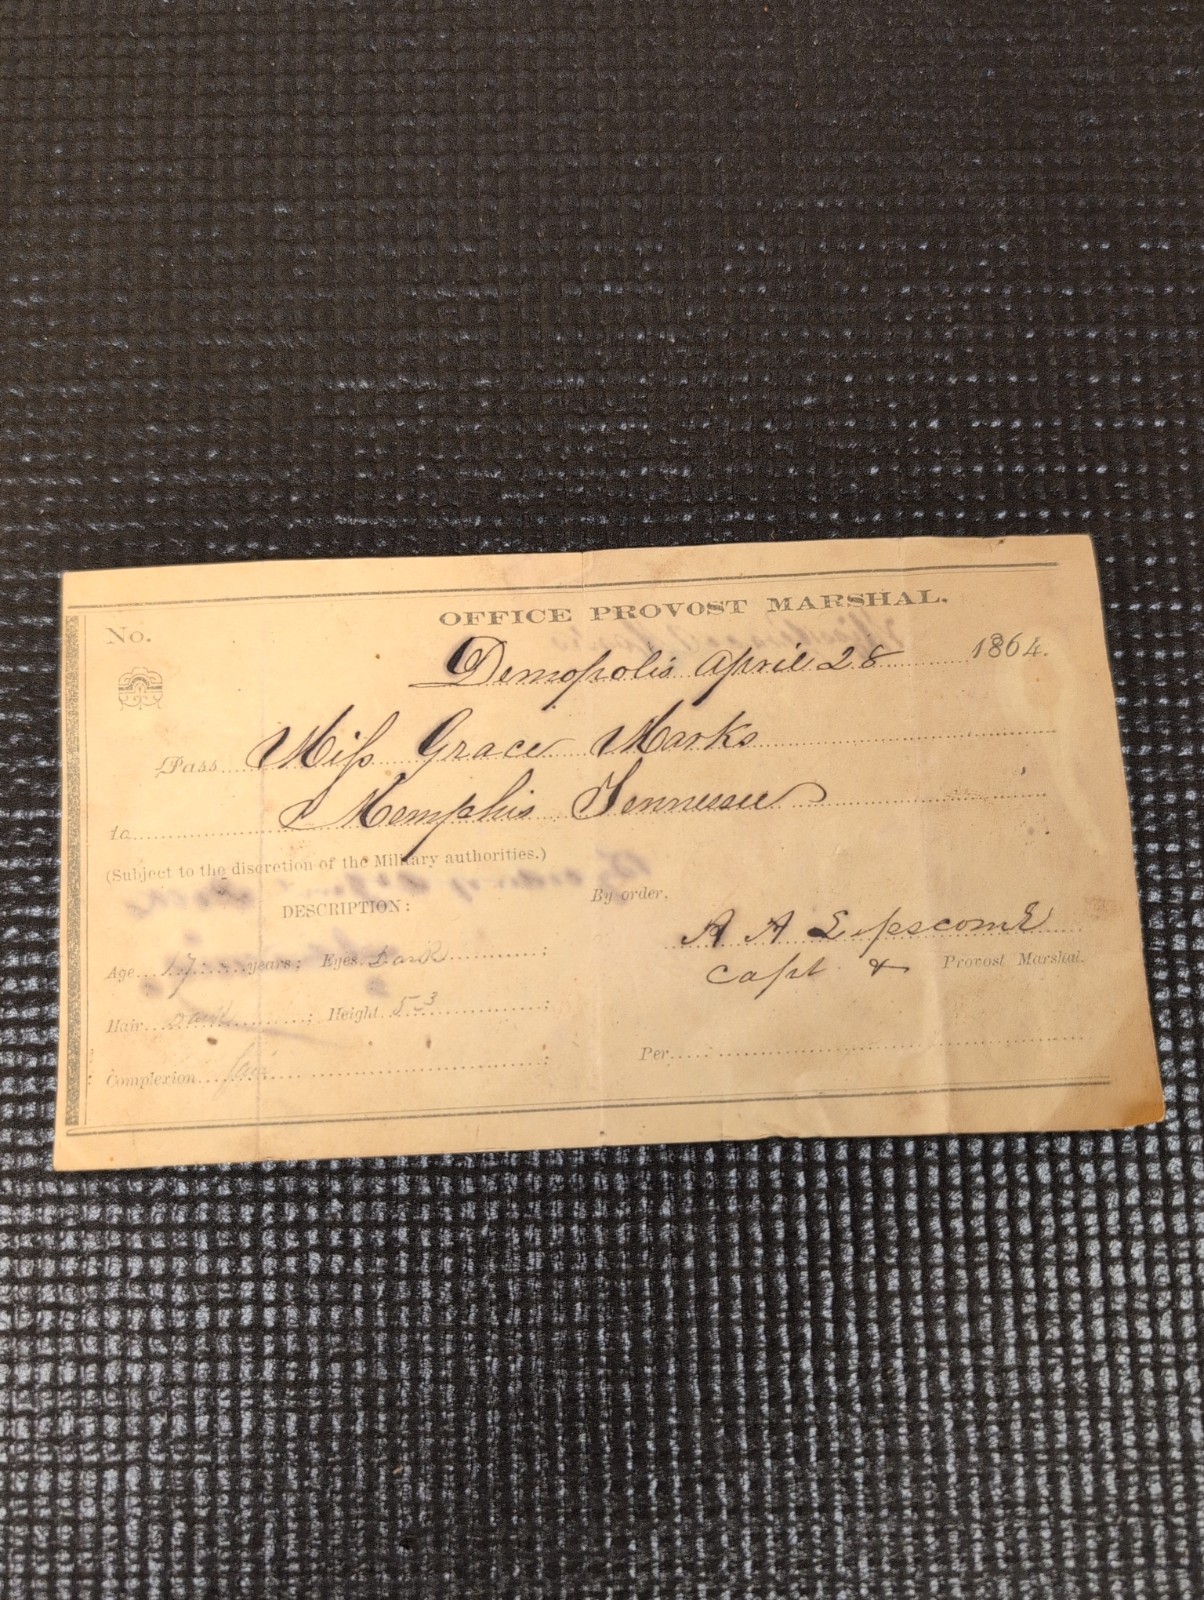 OFFICE PROVOST MARSHAL.
No.
Demopolis April 28 1864.
Pass Miss Grace Marks
to Memphis Tennessee
(Subject to the discretion of the Military authorities.)
DESCRIPTION:
Age 17 years; Eyes Dark;
Hair Dark; Height 5 3;
Complexion fair;
By order,
A A Lipscomb
Capt & Provost Marshal.
Per